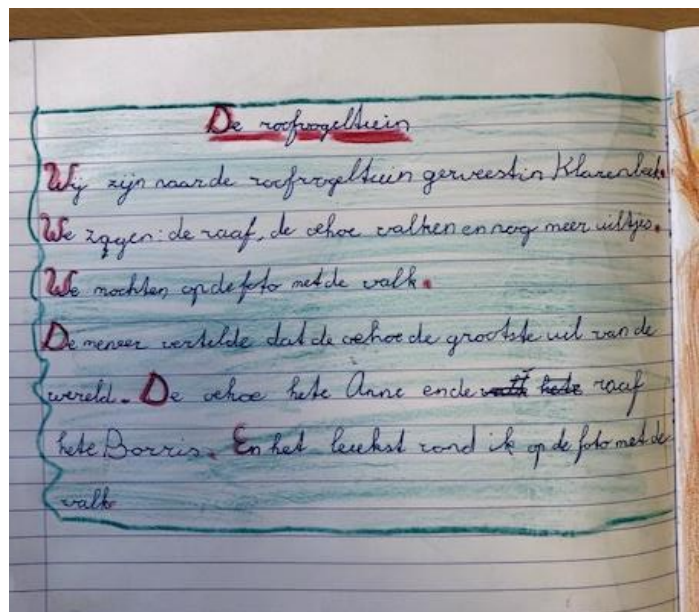 De roofvogeltuin
Wij zijn naar de roofvogeltuin geweest in Klarenbeek.
We zagen: de raaf, de oehoe valken en nog meer uiltjes.
We mochten op de foto met de valk.
De meneer vertelde dat de oehoe de grootste uil van de
wereld. De oehoe hete Anne en de raaf
hete Borris. En het leukst vond ik op de foto met de
valk